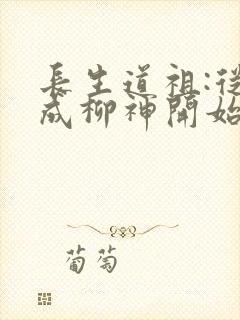 長生道祖:從
成柳神開始
葡萄